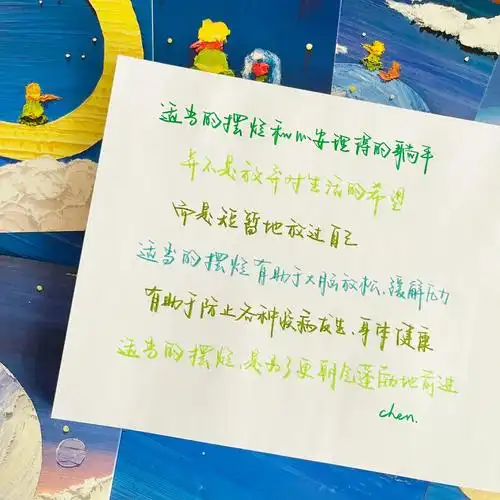 适当的摆烂和心安理得的躺平
并不是放弃对生活的希望
而是短暂地放过自己
适当的摆烂有助于大脑放松、缓解压力
有助于防止各种疾病发生、身体健康
适当的摆烂、是为了更朝气蓬勃地前进
chen.